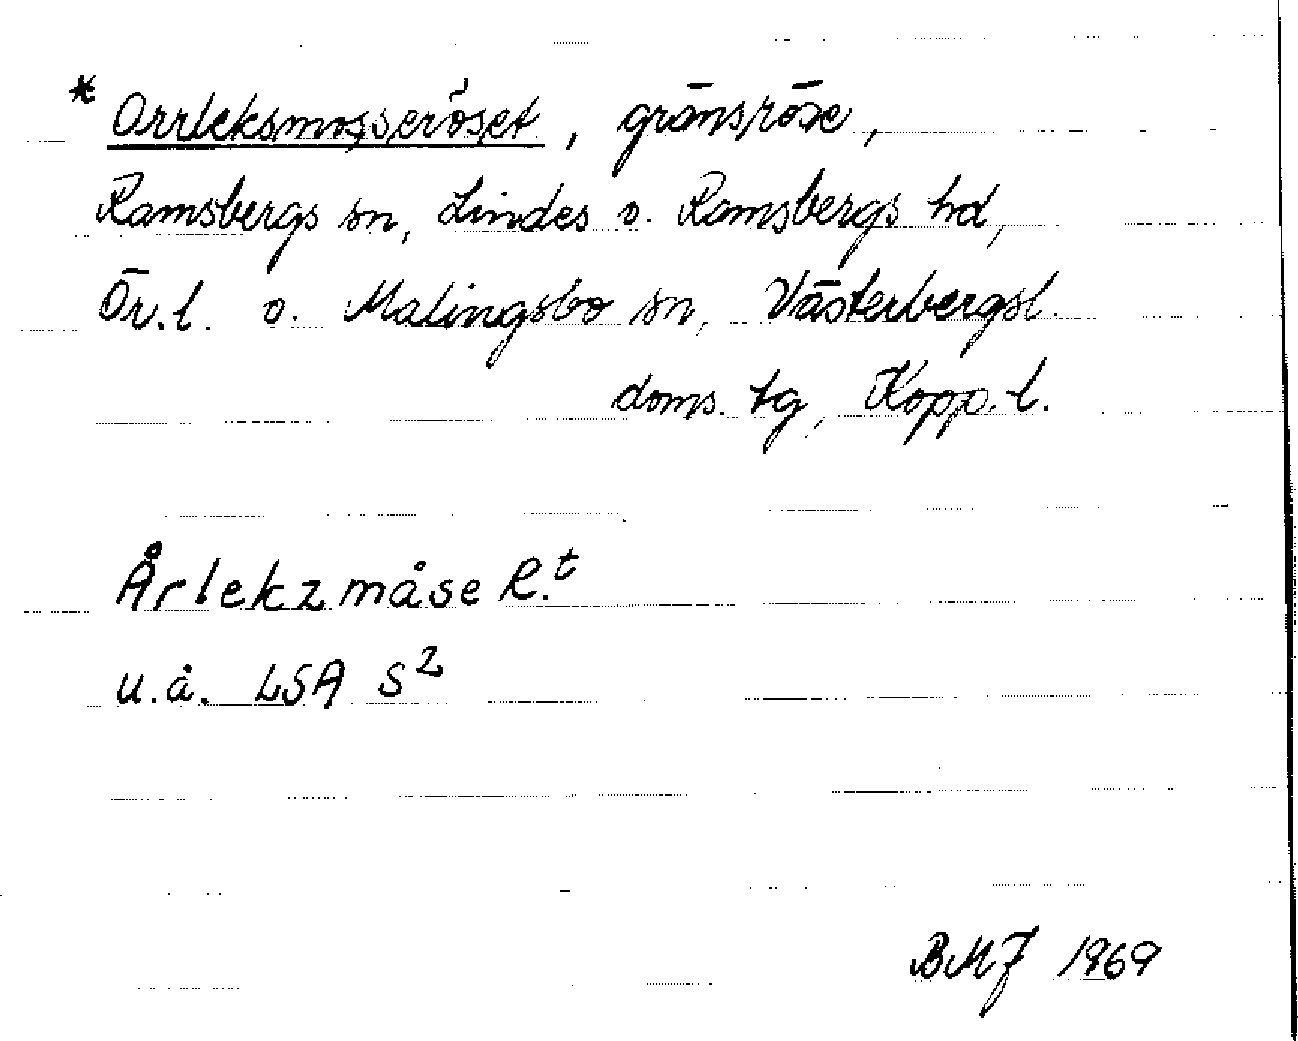 * Orrleksmosseröset, gränsröse,
Ramsbergs sn, Lindes o. Ramsbergs hd,
Ör.l. o. Malingsbo sn, Västerbergsl.
doms. tg, Kopp. l.
Årlekzmåse R.t
u.å. LSA S2
BMJ 1969